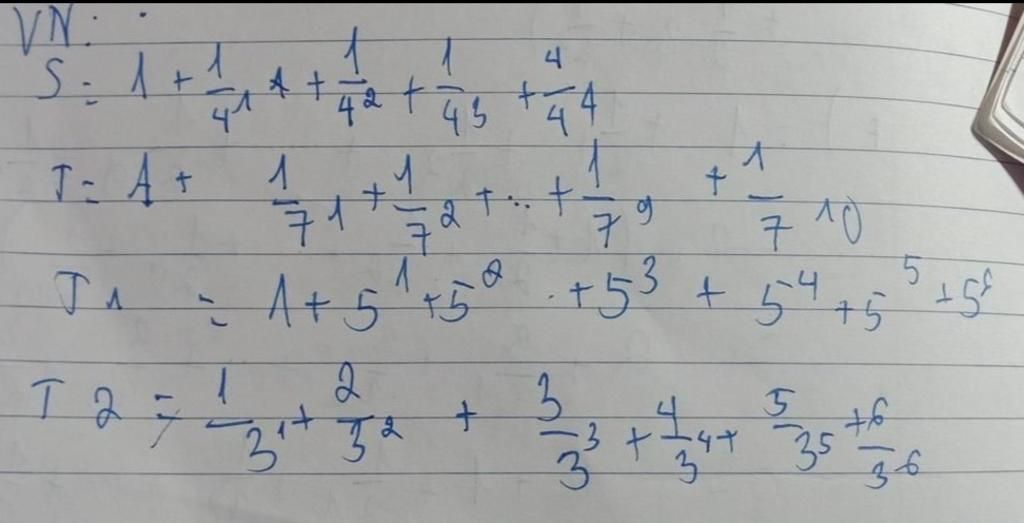 VN:
S = 1 + 1/4^1 + 1/4^2 + 1/4^3 + 4/4^4
T = 1 + 1/7^1 + 1/7^2 + ... + 1/7^9 + 1/7^10
T1 = 1 + 5^1 + 5^2 + 5^3 + 5^4 + 5^5 + 5^6
T2 = 1/3^1 + 2/3^2 + 3/3^3 + 4/3^4 + 5/3^5 + 6/3^6